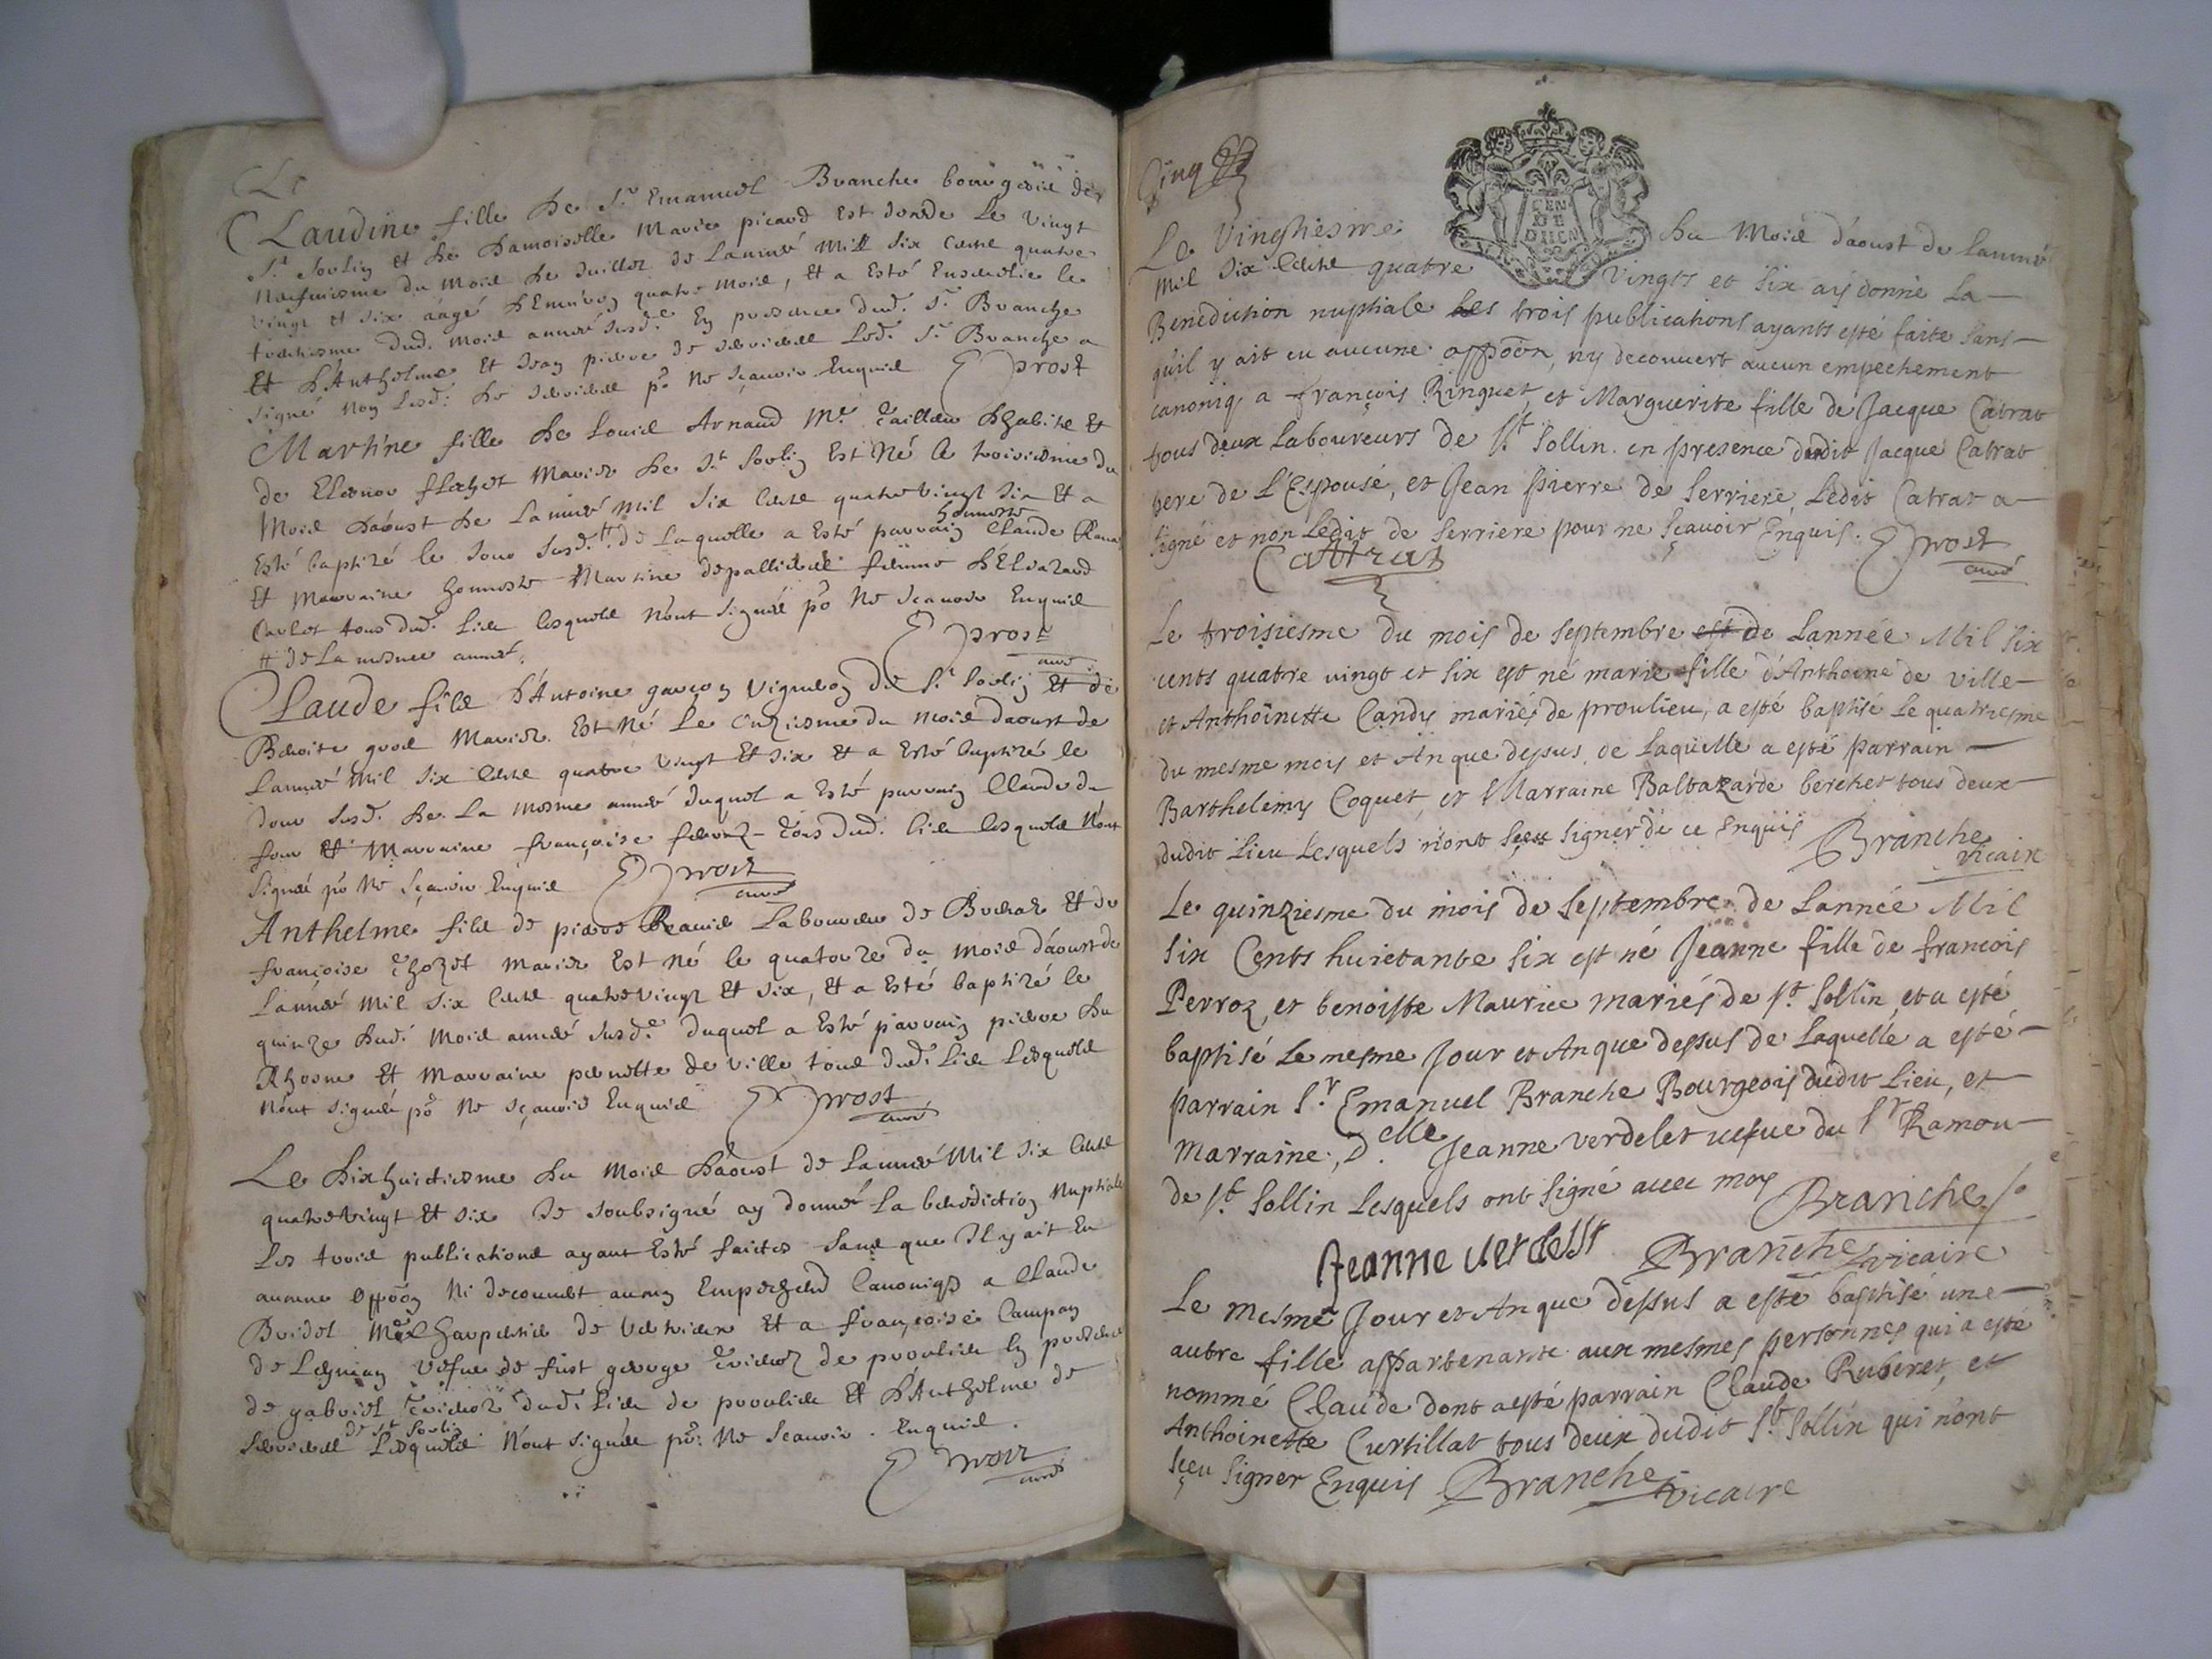 Le
Claudine fille de Sr Emanuel Branche bourgeois de
St Sorlin et de damoiselle Marie picard est decedée le vingt
neufuiesme du mois de Juillet de L'année Mil six cents quatre
vingt et six aagé d'Enuiron quatre mois, et a Esté Enseuelie le
trentiesme dud. mois année susd.e En presence dud. Sr Branche
Et d'Anthelme Et Jean pierre de serrieres Led. Sr Branche a
signé non Lesd. de serrieres po ne sçauoir Enquis Prost
Martine fille de Louis Arnaud Me Tailleur d'habits Et
de Eleonor flochet Mariez de St Sorlin Est Né le troisiesme du
Mois daoust de L'année Mil six cents quatre vingt six Et a
honneste
Esté baptizé le Jour susd. # de Laquelle a Esté parrain Claude
Et Marraine honneste Martine depallieres femme d'
Carlot tous dud. Lieu lesquels n'ont signés po ne sçauoir Enquis
# de La mesme année. Prost
curé
Claude fils d'Antoine garçon Vigneron de St Sorlin Et de
Benoite gros Mariez Est Né Le Onziesme du mois daoust de
L'année Mil six cents quatre vingt Et six Et a Esté baptizé le
Jour susd. de La mesme année duquel a Esté parrain Claude du
four Et Marraine françoise tous dud. lieu lesquels n'ont
signés po ne sçauoir Enquis Prost
curé
Anthelme fils de pierre Laboureur de Et de
françoise Mariez Est né le quatorze du mois d'aoust de
L'année mil six cents quatre vingt Et six, Et a Esté baptizé le
quinze dud. mois année susd.e duquel a Esté parrain pierre du
Rhosne Et Marraine pernette de Ville tous dud. Lieu Lesquels
n'ont signés po ne sçauoir Enquis Prost
curé
Le dixhuictiesme du mois d'aoust de L'année Mil six cents
quatre vingt Et six Je soubsigné ay donné La benediction Nuptiale
Les trois publications ayant Esté faictes sans que Il y ait Eu
aucune oppoon Ni decouuert aucun Empeschem.t Canonique a Claude
Me Charpentier de Et a françoise Campan
de vefue de fust george de proulieu En presence
de gabriel dud. Lieu de proulieu Et d'Anthelme de
de St Sorlin
serrieres Lesquels n'ont signés po ne sçauoir Enquis.
Prost
curé
Cinq
GEN
DIJON
Le Vingtiesme du Mois d'aoust de Lannée
Mil Six Cents quatre Vingts et Six ay donné La
Benediction nuptiale les trois publications ayants esté faite sans
qu'il y ait eu aucune oppoon, ny decouuert aucun empechement
canoniq. a françois Ringuet, et Marguerite fille de Jacque Catrat
tous deux Laboureurs de St Sollin. en presence dudit Jacque Catrat
pere de L'Espousé, et Jean Pierre de Serriere, Ledit Catrat a
signé et non Ledit de Serriere pour ne sçauoir Enquis. Prost
Cattrat curé
Le troisiesme du mois de Septembre est de Lannée Mil Six
cents quatre vingt et six est né marie fille d'Anthoine de ville
et Anthoinette Candy mariés de proulieu, a esté baptisé Le quatriesme
du mesme mois et An que dessus, de Laquelle a esté parrain
Barthelemy Coquet, et Marraine Baltazarde berchet tous deux
dudit Lieu Lesquels n'ont sceu signer de ce Enquis Branche
Vicaire
Le quinziesme du mois de Septembre de Lannée Mil
Six Cents huictante six est né Jeanne fille de francois
Perroz, et benoiste Maurice mariés de St Sollin, et a esté
baptisé Le mesme Jour et An que dessus de Laquelle a esté
parrain Sr Emanuel Branche Bourgeois dudit Lieu, et
Marraine, D.elle Jeanne verdelet uefue du Sr Ramou
de St Sollin Lesquels ont signé auec moy Branche
Jeanne uerdellet Branche vicaire
Le Mesme Jour et An que dessus a esté baptisé une
autre fille appartenante aux mesmes personnes qui a esté
nommé Claude dont a esté parrain Claude Ruberet, et
Anthoinette Curtillat tous deux dudit St Sollin qui n'ont
sçeu signer Enquis Branche vicaire